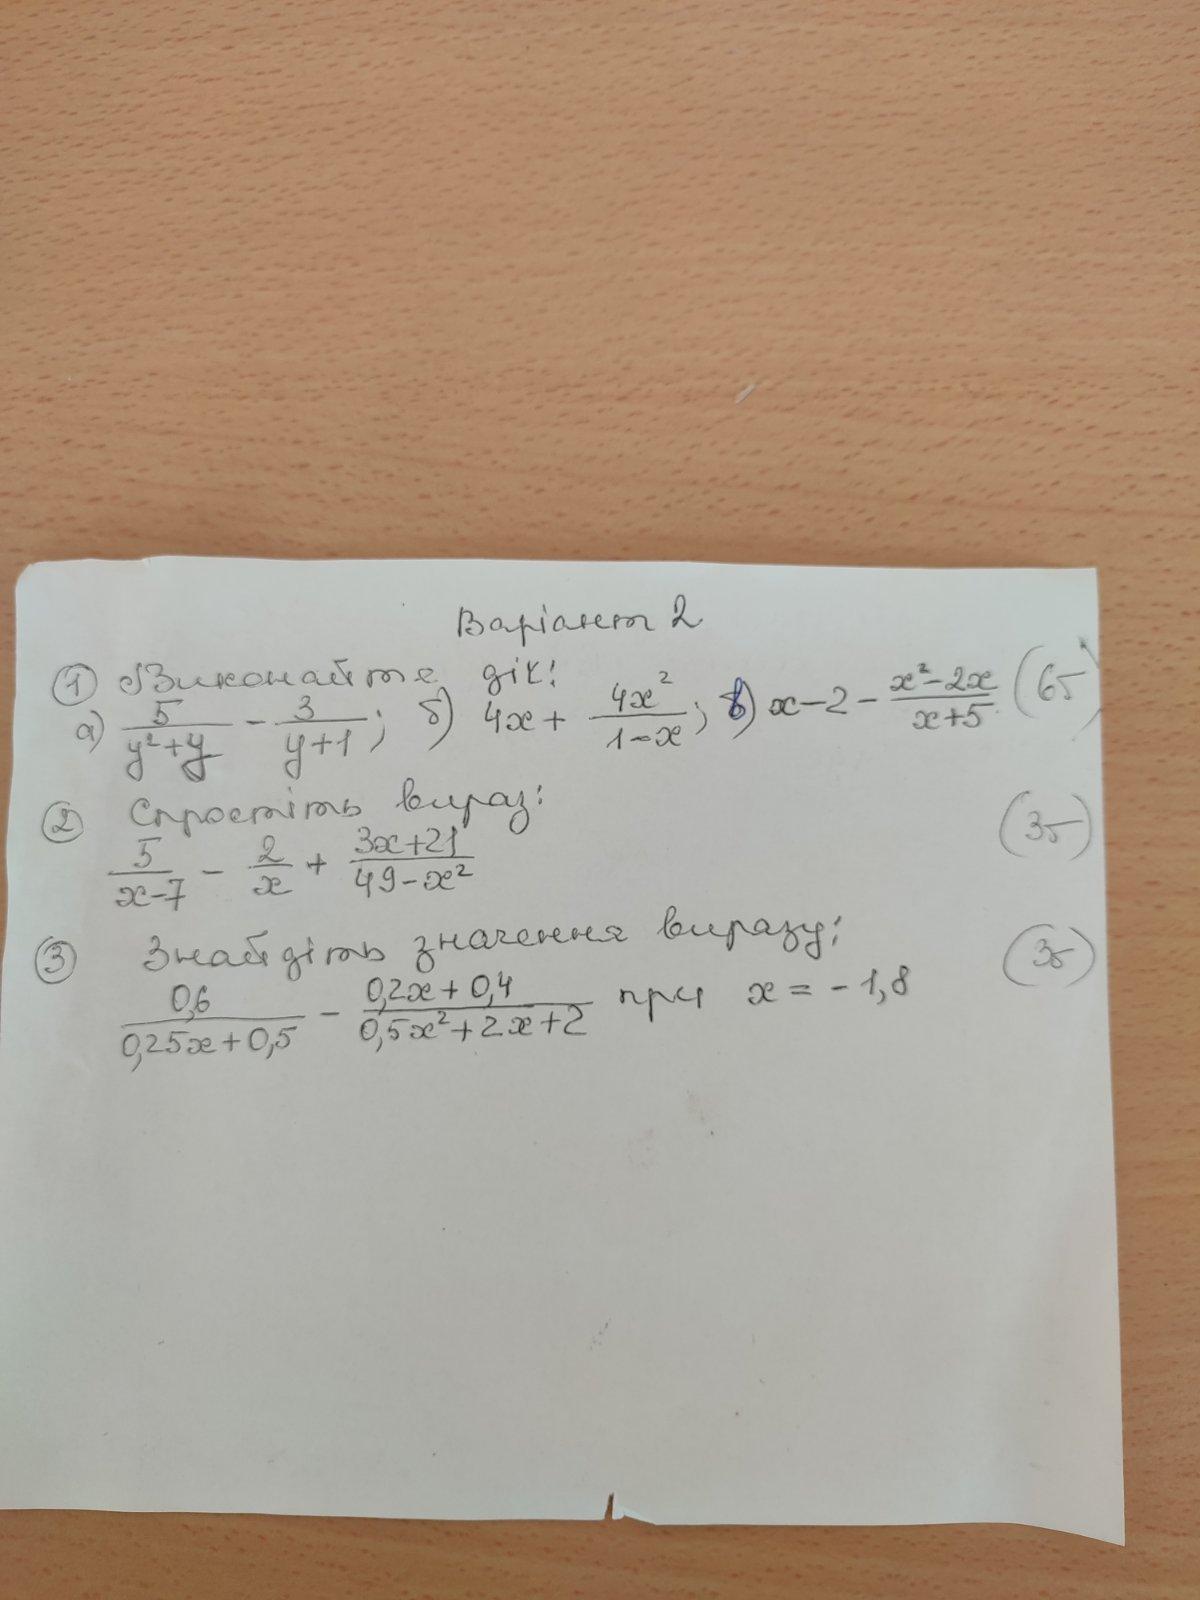 Варіант 2
① Виконайте дії:
а) 5/(y²+y) - 3/(y+1); б) 4x + 4x²/(1-x); в) x-2 - (x²-2x)/(x+5) (6б)
② Спростіть вираз: (3б)
5/(x-7) - 2/x + (3x+21)/(49-x²)
③ Знайдіть значення виразу: (3б)
0,6/(0,25x+0,5) - (0,2x+0,4)/(0,5x²+2x+2) при x = -1,8